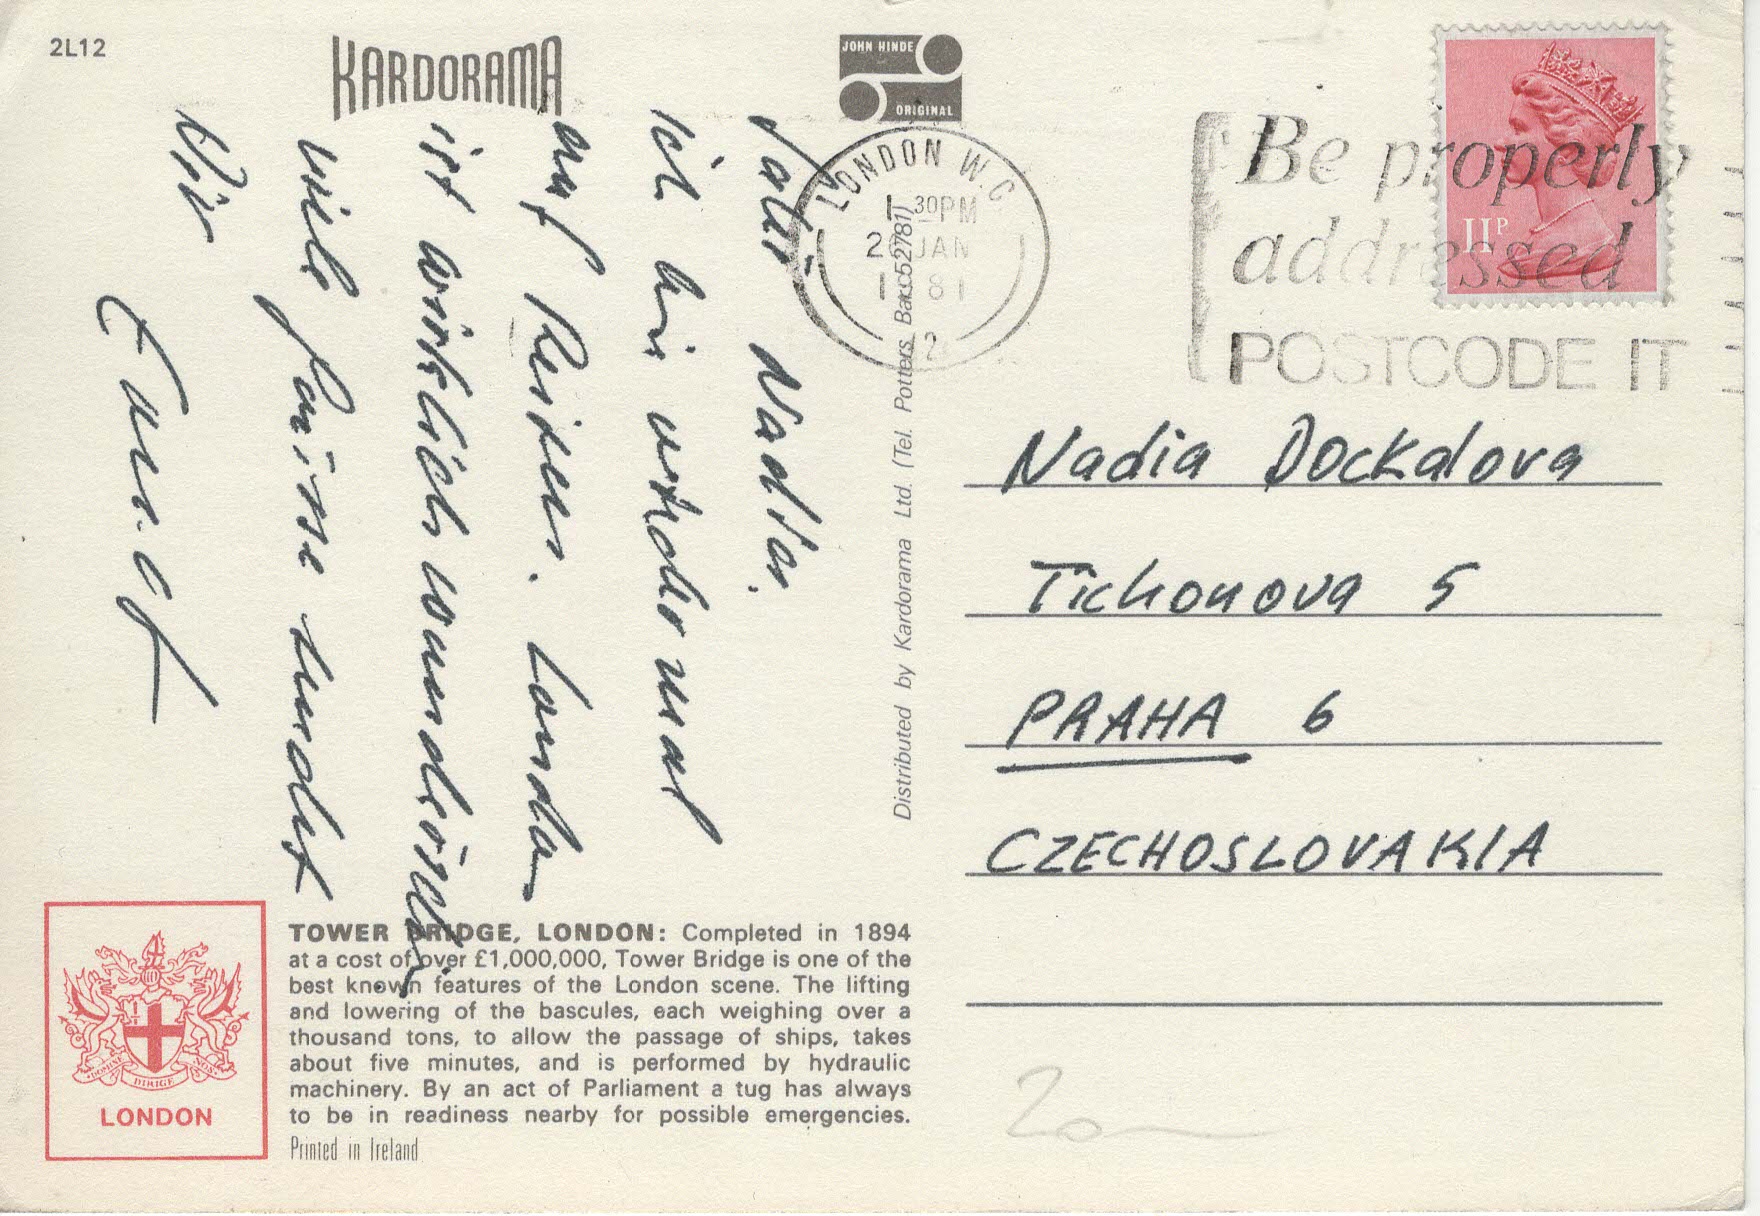 2L12
KARDORAMA
JOHN HINDE
ORIGINAL
LONDON W.C.
1 30PM
2 JAN
1 81
2
Be properly
addressed
POSTCODE IT
11P
Nadia.
Ich bin mal
auf Reisen. London
ist wirklich
viele
Dir
Distributed by Kardorama Ltd. (Tel. Potters Bar 52781)
Nadia Dockalova
Tichonova 5
PRAHA 6
CZECHOSLOVAKIA
TOWER BRIDGE, LONDON: Completed in 1894
at a cost of over £1,000,000, Tower Bridge is one of the
best known features of the London scene. The lifting
and lowering of the bascules, each weighing over a
thousand tons, to allow the passage of ships, takes
about five minutes, and is performed by hydraulic
machinery. By an act of Parliament a tug has always
to be in readiness nearby for possible emergencies.
Printed in Ireland
DOMINE DIRIGE NOS
LONDON